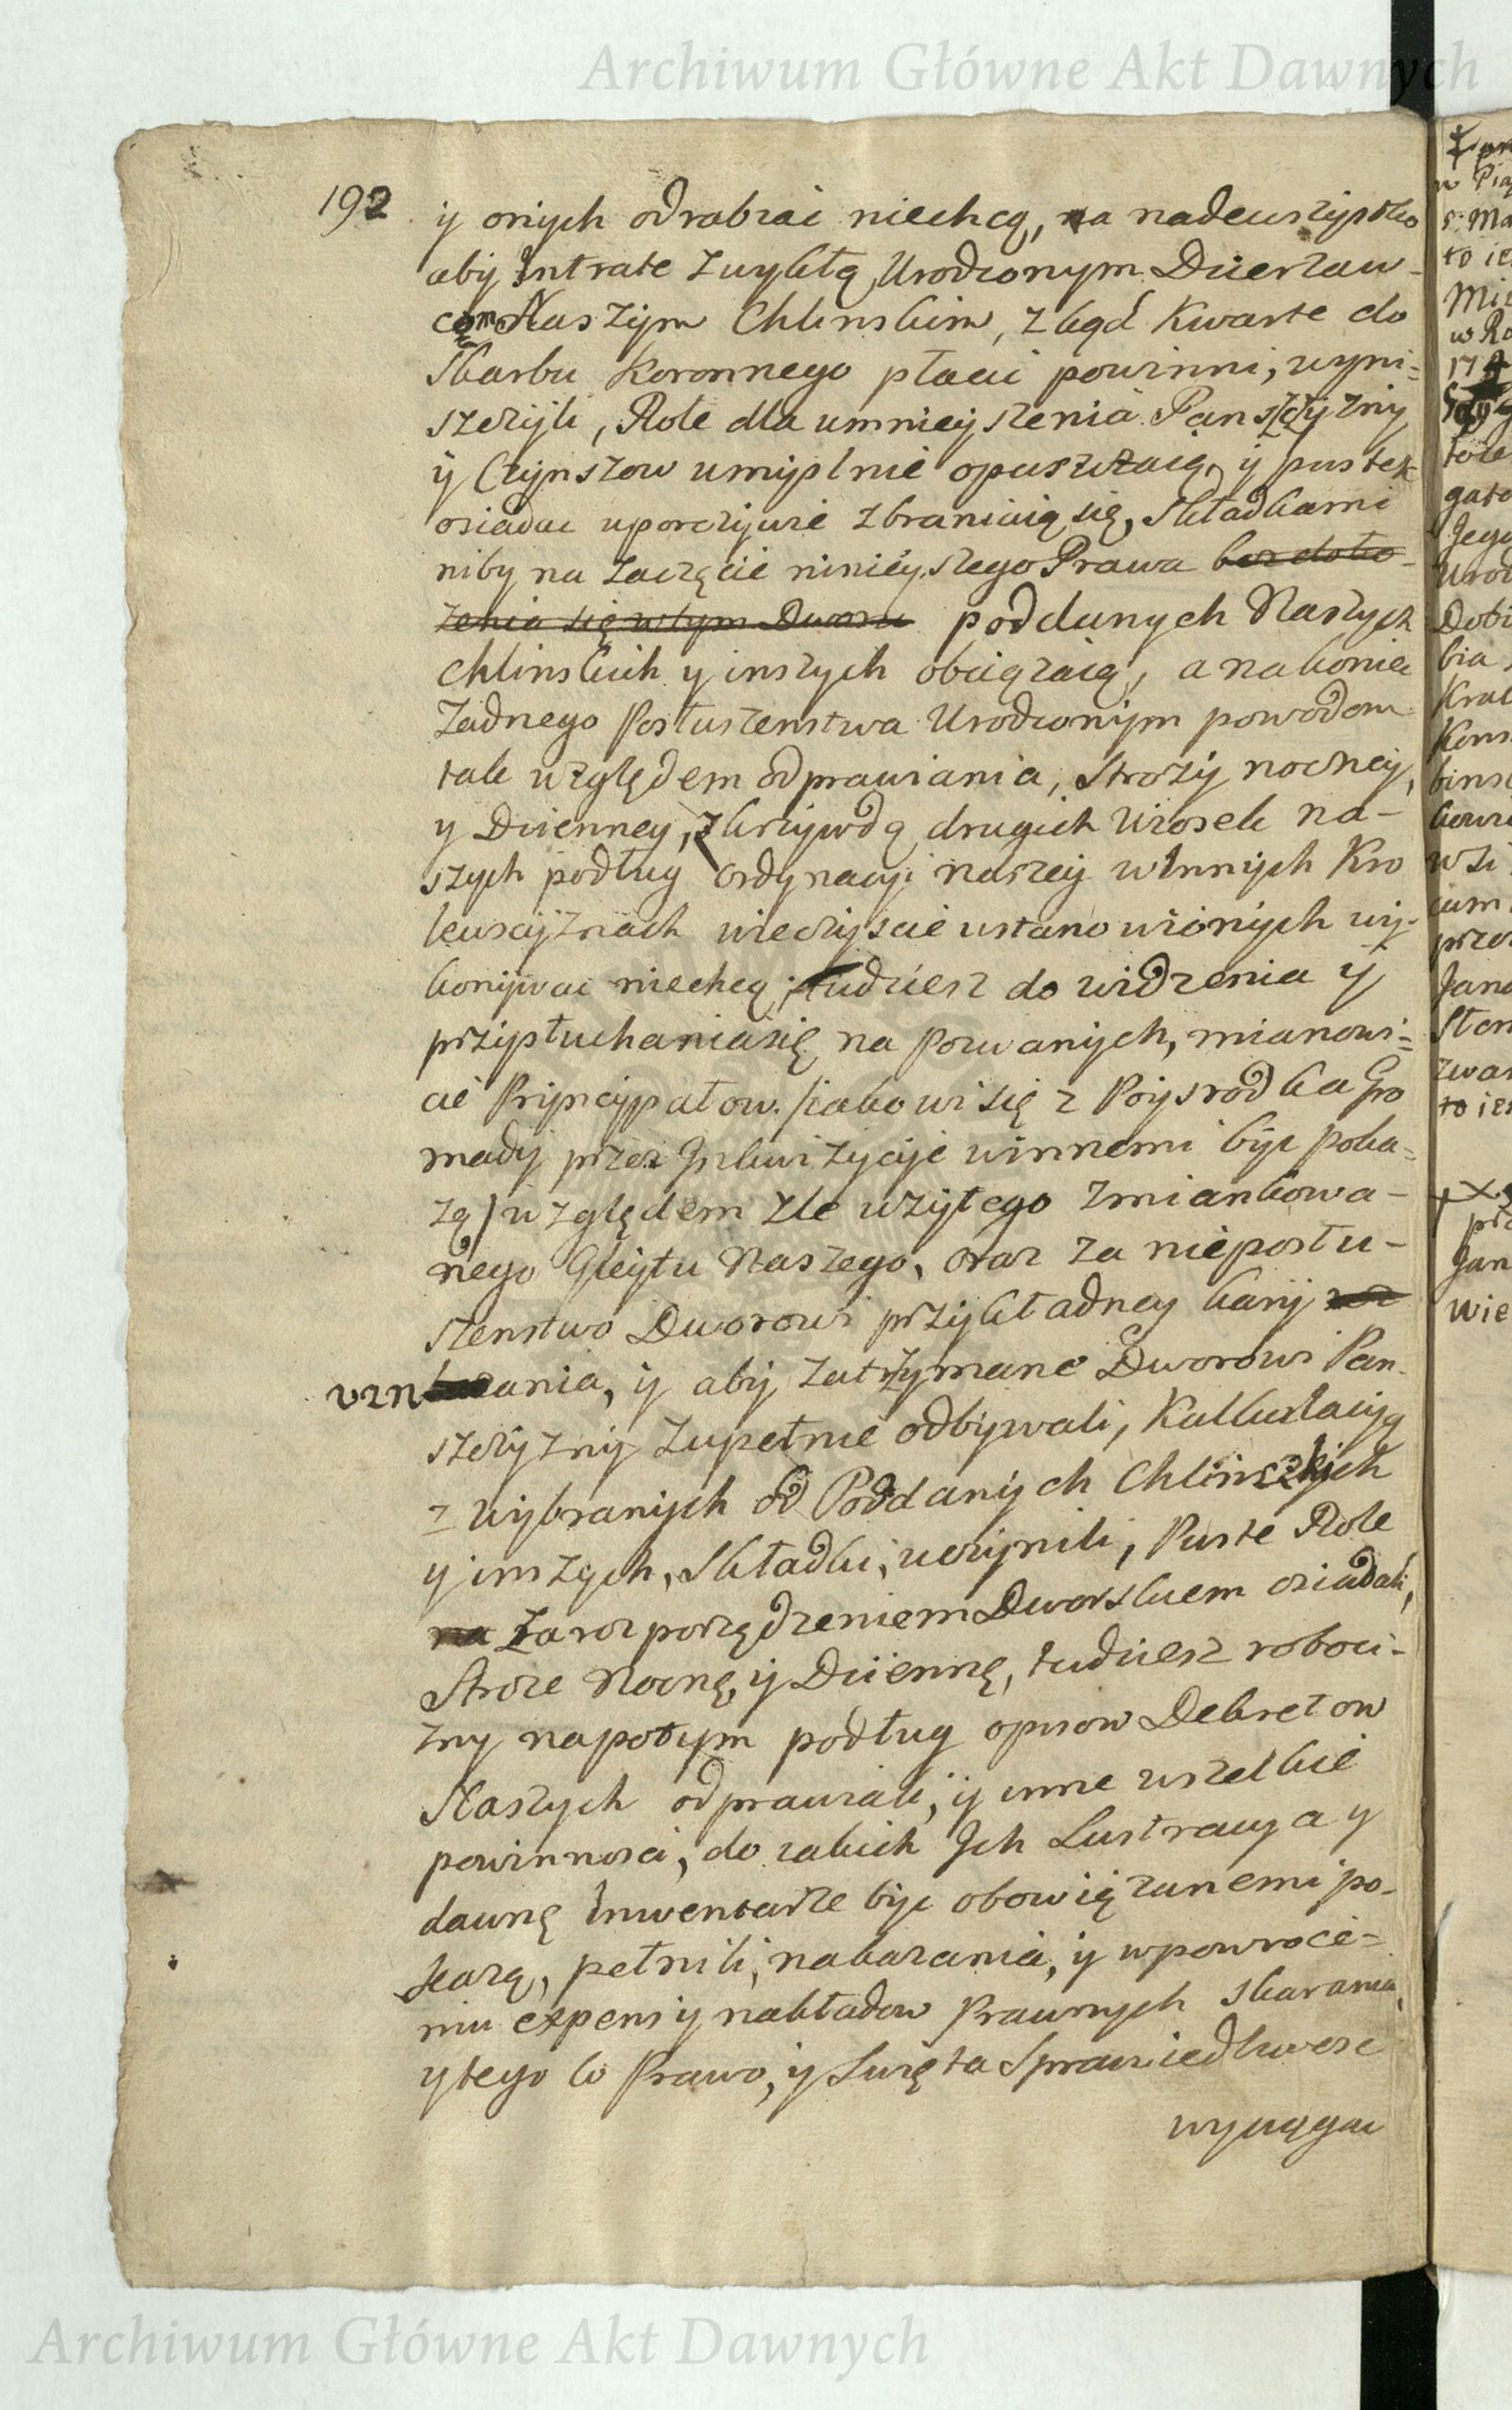 Archiwum Główne Akt Dawnych
192
y onych odrabiać niechcą, na nadewszystko
aby Intrate zwykłą Urodzonym Dzierzaw-
com Naszym Chlinskim, zkąd Kwarte do
Skarbu Koronnego płacić powinni, wyni-
szczyli, Role dla umnieyszenia Panszczyzny
y Czynszow umyslnie opuszczaią, y pustek
osiadac uporczywie zbraniaią się, Składkami
niby na zaczęcie ninieyszego Prawa bez doło-
zenia się wtym Dworu poddanych Naszych
Chlinskich y inszych obciązaią, a nakoniec
Zadnego Posłuszenstwa Urodzonym powodom
tak względem odprawiania, Strozy nocney,
y Dzienney, z krzywdą drugich Wiosek na-
szych podług Ordynacyi naszey w Innych Kro
lewszyznach wieczyscie ustanowionych wy-
konywac niechcą; tudziesz do widzenia y
przysłuchania się na Pozwanych, mianowi-
cie Pryncypałow /iakowi się z Posrodka Gro
mady przez Inkwizycye winnemi byc poka-
zą/ względem zle uzytego zmiankowa-
nego Gleytu Naszego, oraz za niepostu-
szenstwo Dworowi przykładney kary
uznania, y aby zatrzymane Dworowi Pan-
szczyzny zupełnie odbywali, Kalkulacyą
z Wybranych od Poddanych Chlinszkich
y inszych, Składki, uczynili, Puste Role
na Za rozporządzeniem Dworskiem osiadali,
Stroze Nocną, y Dzienną, tudziesz roboci-
zny napotym podług opisow Dekretow
Naszych odprawiali, y inne wszelkie
powinnosci, do iakich Ich Lustracya y
dawne Inwentarze byc obowiązanemi po-
kazą, pełnili, nakazania, y wpowroce-
niu expens y nakładow Prawnych skarania,
y tego co Prawo, y Swięta Sprawiedliwosc
wyciągac
Archiwum Główne Akt Dawnych